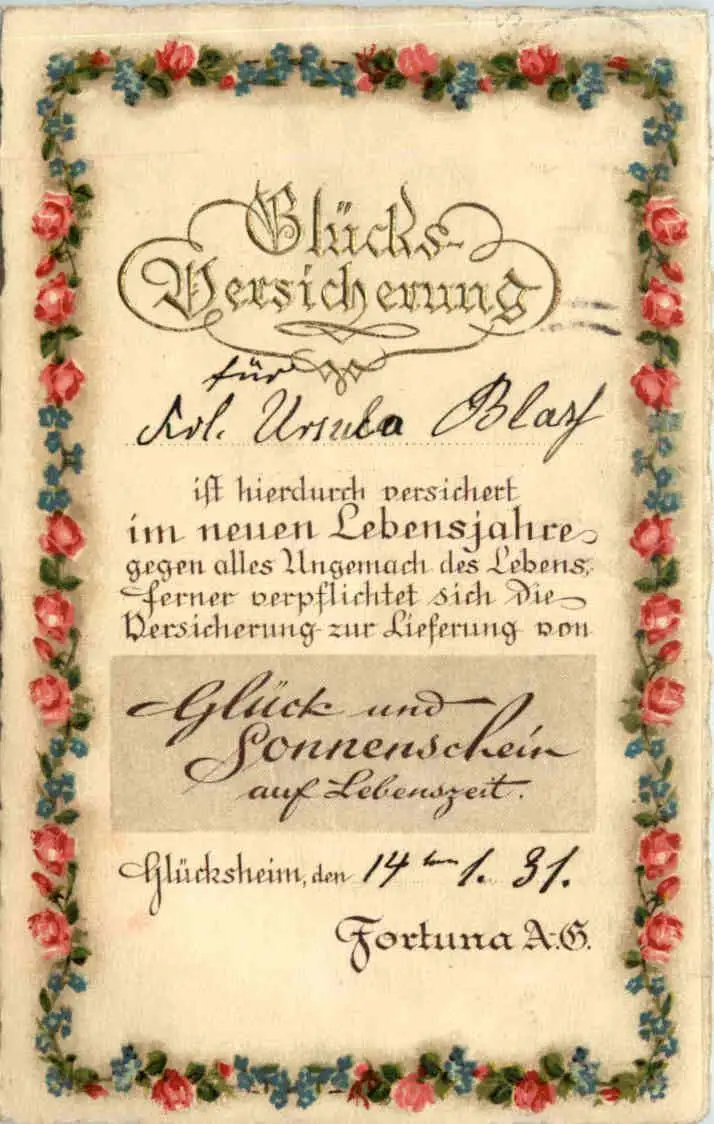 Glücks-
Versicherung
für
Frl. Ursula
ist hierdurch versichert
im neuen Lebensjahre
gegen alles Ungemach des Lebens,
ferner verpflichtet sich die
Versicherung zur Lieferung von
Glück und
Sonnenschein
auf Lebenszeit.
Glücksheim, den 14ten 1. 31.
Fortuna A.G.